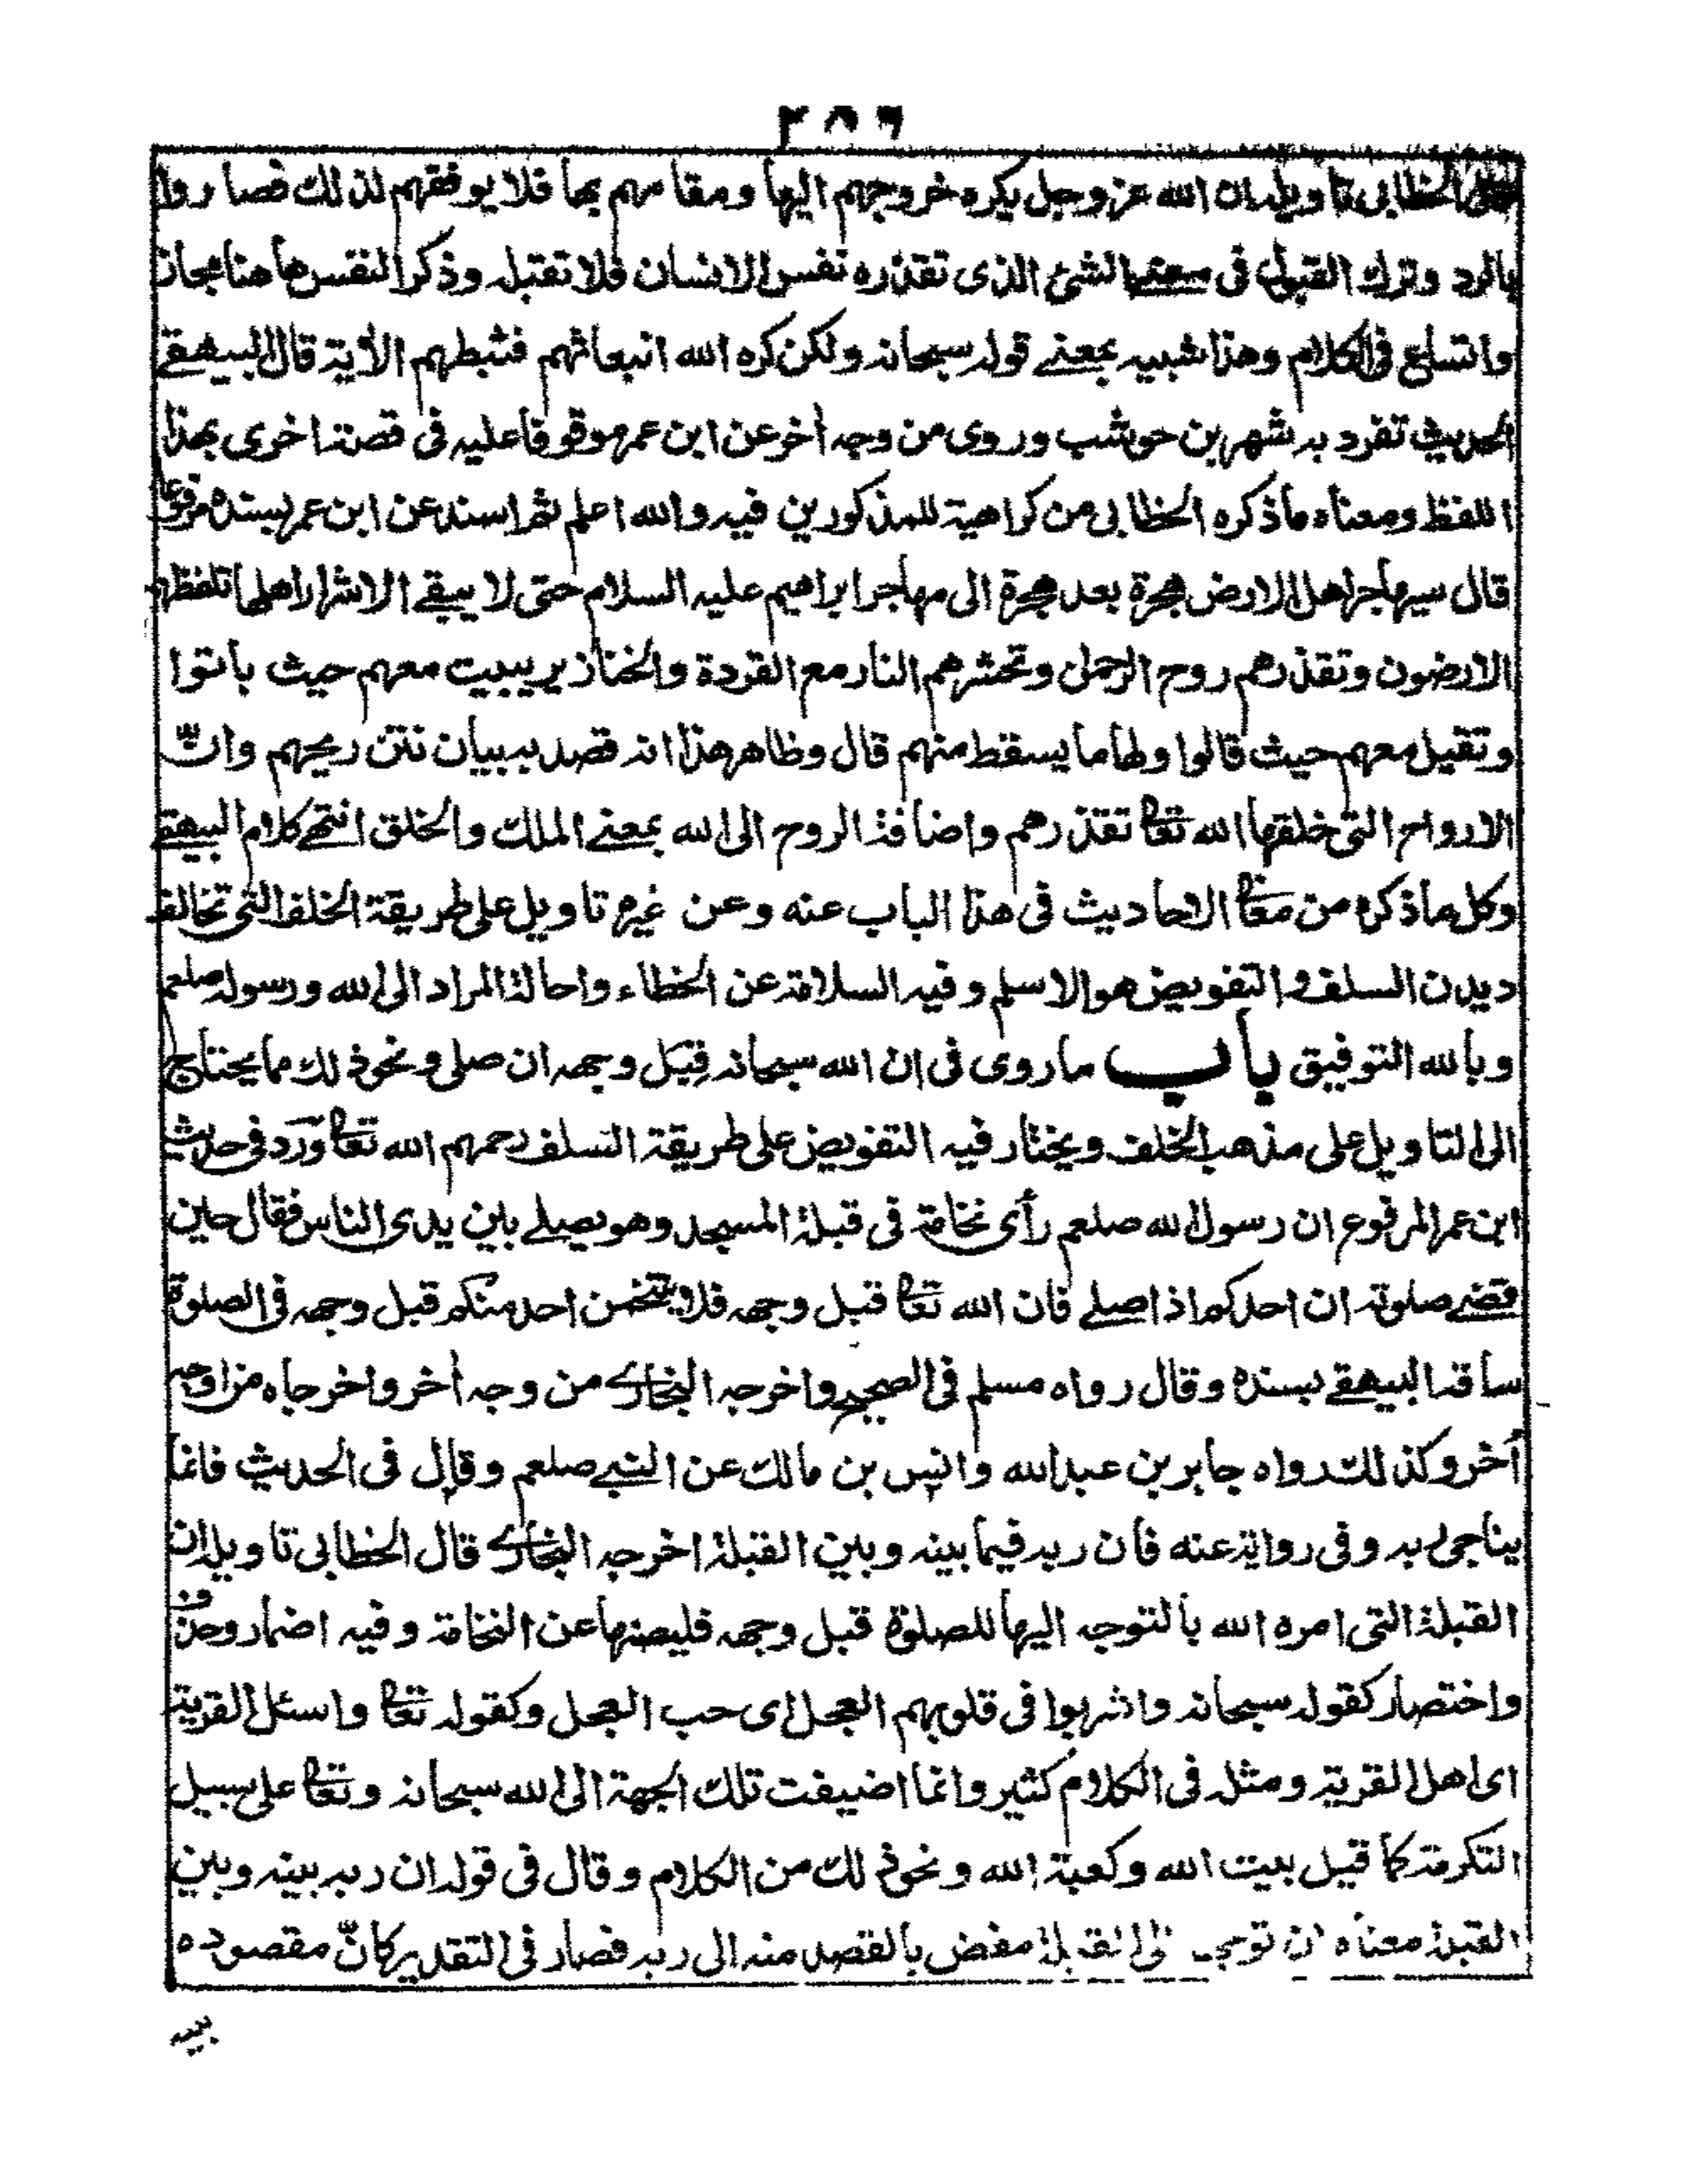 ٢٨٦
الخطابى تاويله ان الله عز وجل يكره خروجهم اليها ومقامهم بها فلا يوفقهم لذلك فصاروا
بالرد وترك القبول فى معنى الشئ الذى تقذره نفس الانسان فلا تقبله وذكر النفس هاهنا مجاز
واتساع فى الكلام وهذا شبيه بمعنے قوله سبحانه ولكن كره الله انبعاثهم فثبطهم الأية قال البيهقے
الحديث تفرد به شهر بن حوشب وروى من وجه أخر عن ابن عمر موقوفا عليه فى قصة اخرى بهذا
اللفظ ومعناه ما ذكره الخطابى من كراهية للمذكورين فيه والله اعلم ثم اسند عن ابن عمر بسنده مرفوعا
قال سيهاجر اهل الارض هجرة بعد هجرة الى مهاجر ابراهيم عليه السلام حتى لا يبقے الا شرار اهلها تلفظهم
الارضون وتقذرهم روح الرحمن وتحشرهم النار مع القردة والخنازير يبيت معهم حيث باتوا
وتقيل معهم حيث قالوا ولها ما يسقط منهم قال وظاهر هذا انه قصد به بيان نتن ريحهم وانّ
الارواح التى خلقها الله تعا تقذرهم واضافة الروح الى الله بمعنے الملك والخلق انتهے كلام البيهقے
وكل ما ذكره من معا الاحاديث فى هذا الباب عنه وعن غيره تاويل على طريقة الخلف التى تخالف
ديدن السلف والتفويض هو الاسلم وفيه السلامة عن الخطاء واحالة المراد الى الله ورسوله صلعم
وبالله التوفيق باب ما روى فى ان الله سبحانه قِبَل وجهه ان صلى ونحو ذلك مما يحتاج
الى التاويل على مذهب الخلف ويختار فيه التفويض على طريقة السلف رحمهم الله تعا وَرَد فى حديث
ابن عمر المرفوع ان رسول الله صلعم رأى نخامة فى قبلة المسجد وهو يصلے بين يدى الناس فقال حين
قضے صلوته ان احدكم اذا صلے فان الله تعا قبل وجهه فلا يتنخمن احد منكم قبل وجهه فى الصلوة
ساقه البيهقے بسنده وقال رواه مسلم فى الصحيح واخرجه البخارے من وجه أخر واخرجاه من اوجه
أخر وكذلك رواه جابر بن عبد الله وانس بن مالك عن النبے صلعم وقال فى الحديث فانما
يناجى ربه وفى رواية عنه فان ربه فيما بينه وبين القبلة اخرجه البخارے قال الخطابى تاويله ان
القبلة التى امره الله بالتوجه اليها للصلوة قبل وجهه فليصنها عن النخامة وفيه اضمار وحذف
واختصار كقوله سبحانه واشربوا فى قلوبهم العجل اى حب العجل وكقوله تعا واسئل القرية
اى اهل القرية ومثله فى الكلام كثير وانما اضيفت تلك الجهة الى الله سبحانه وتعا على سبيل
التكرمة كما قيل بيت الله وكعبة الله ونحو ذلك من الكلام وقال فى قوله ان ربه بينه وبين
القبلة معناه ان توجهه الى القبلة مفض بالقصد منه الى ربه فصار فى التقدير كانّ مقصوده
بينه